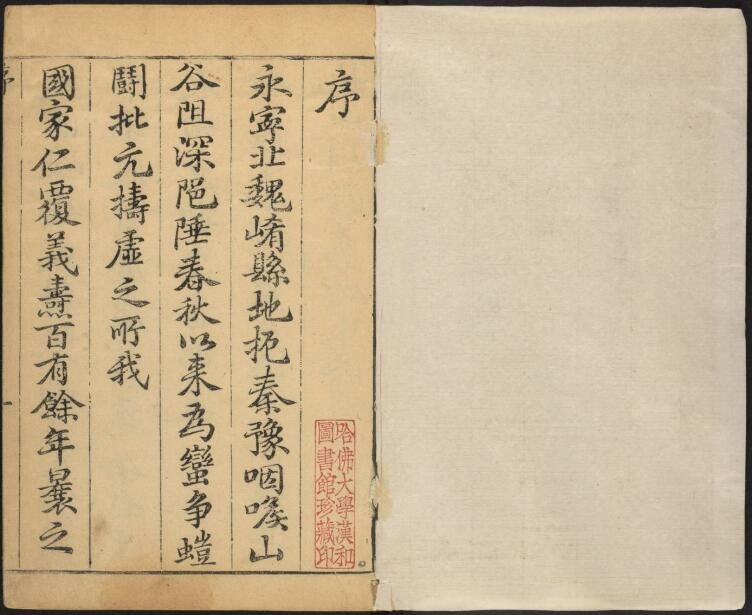 序
永寧北魏崤縣地扼秦豫咽喉山
谷阻深阨陲春秋以来為蠻争螘
鬪批亢擣虛之所我
國家仁覆義燾百有餘年曩之
序
一
哈佛大學漢和
圖書館珍藏印